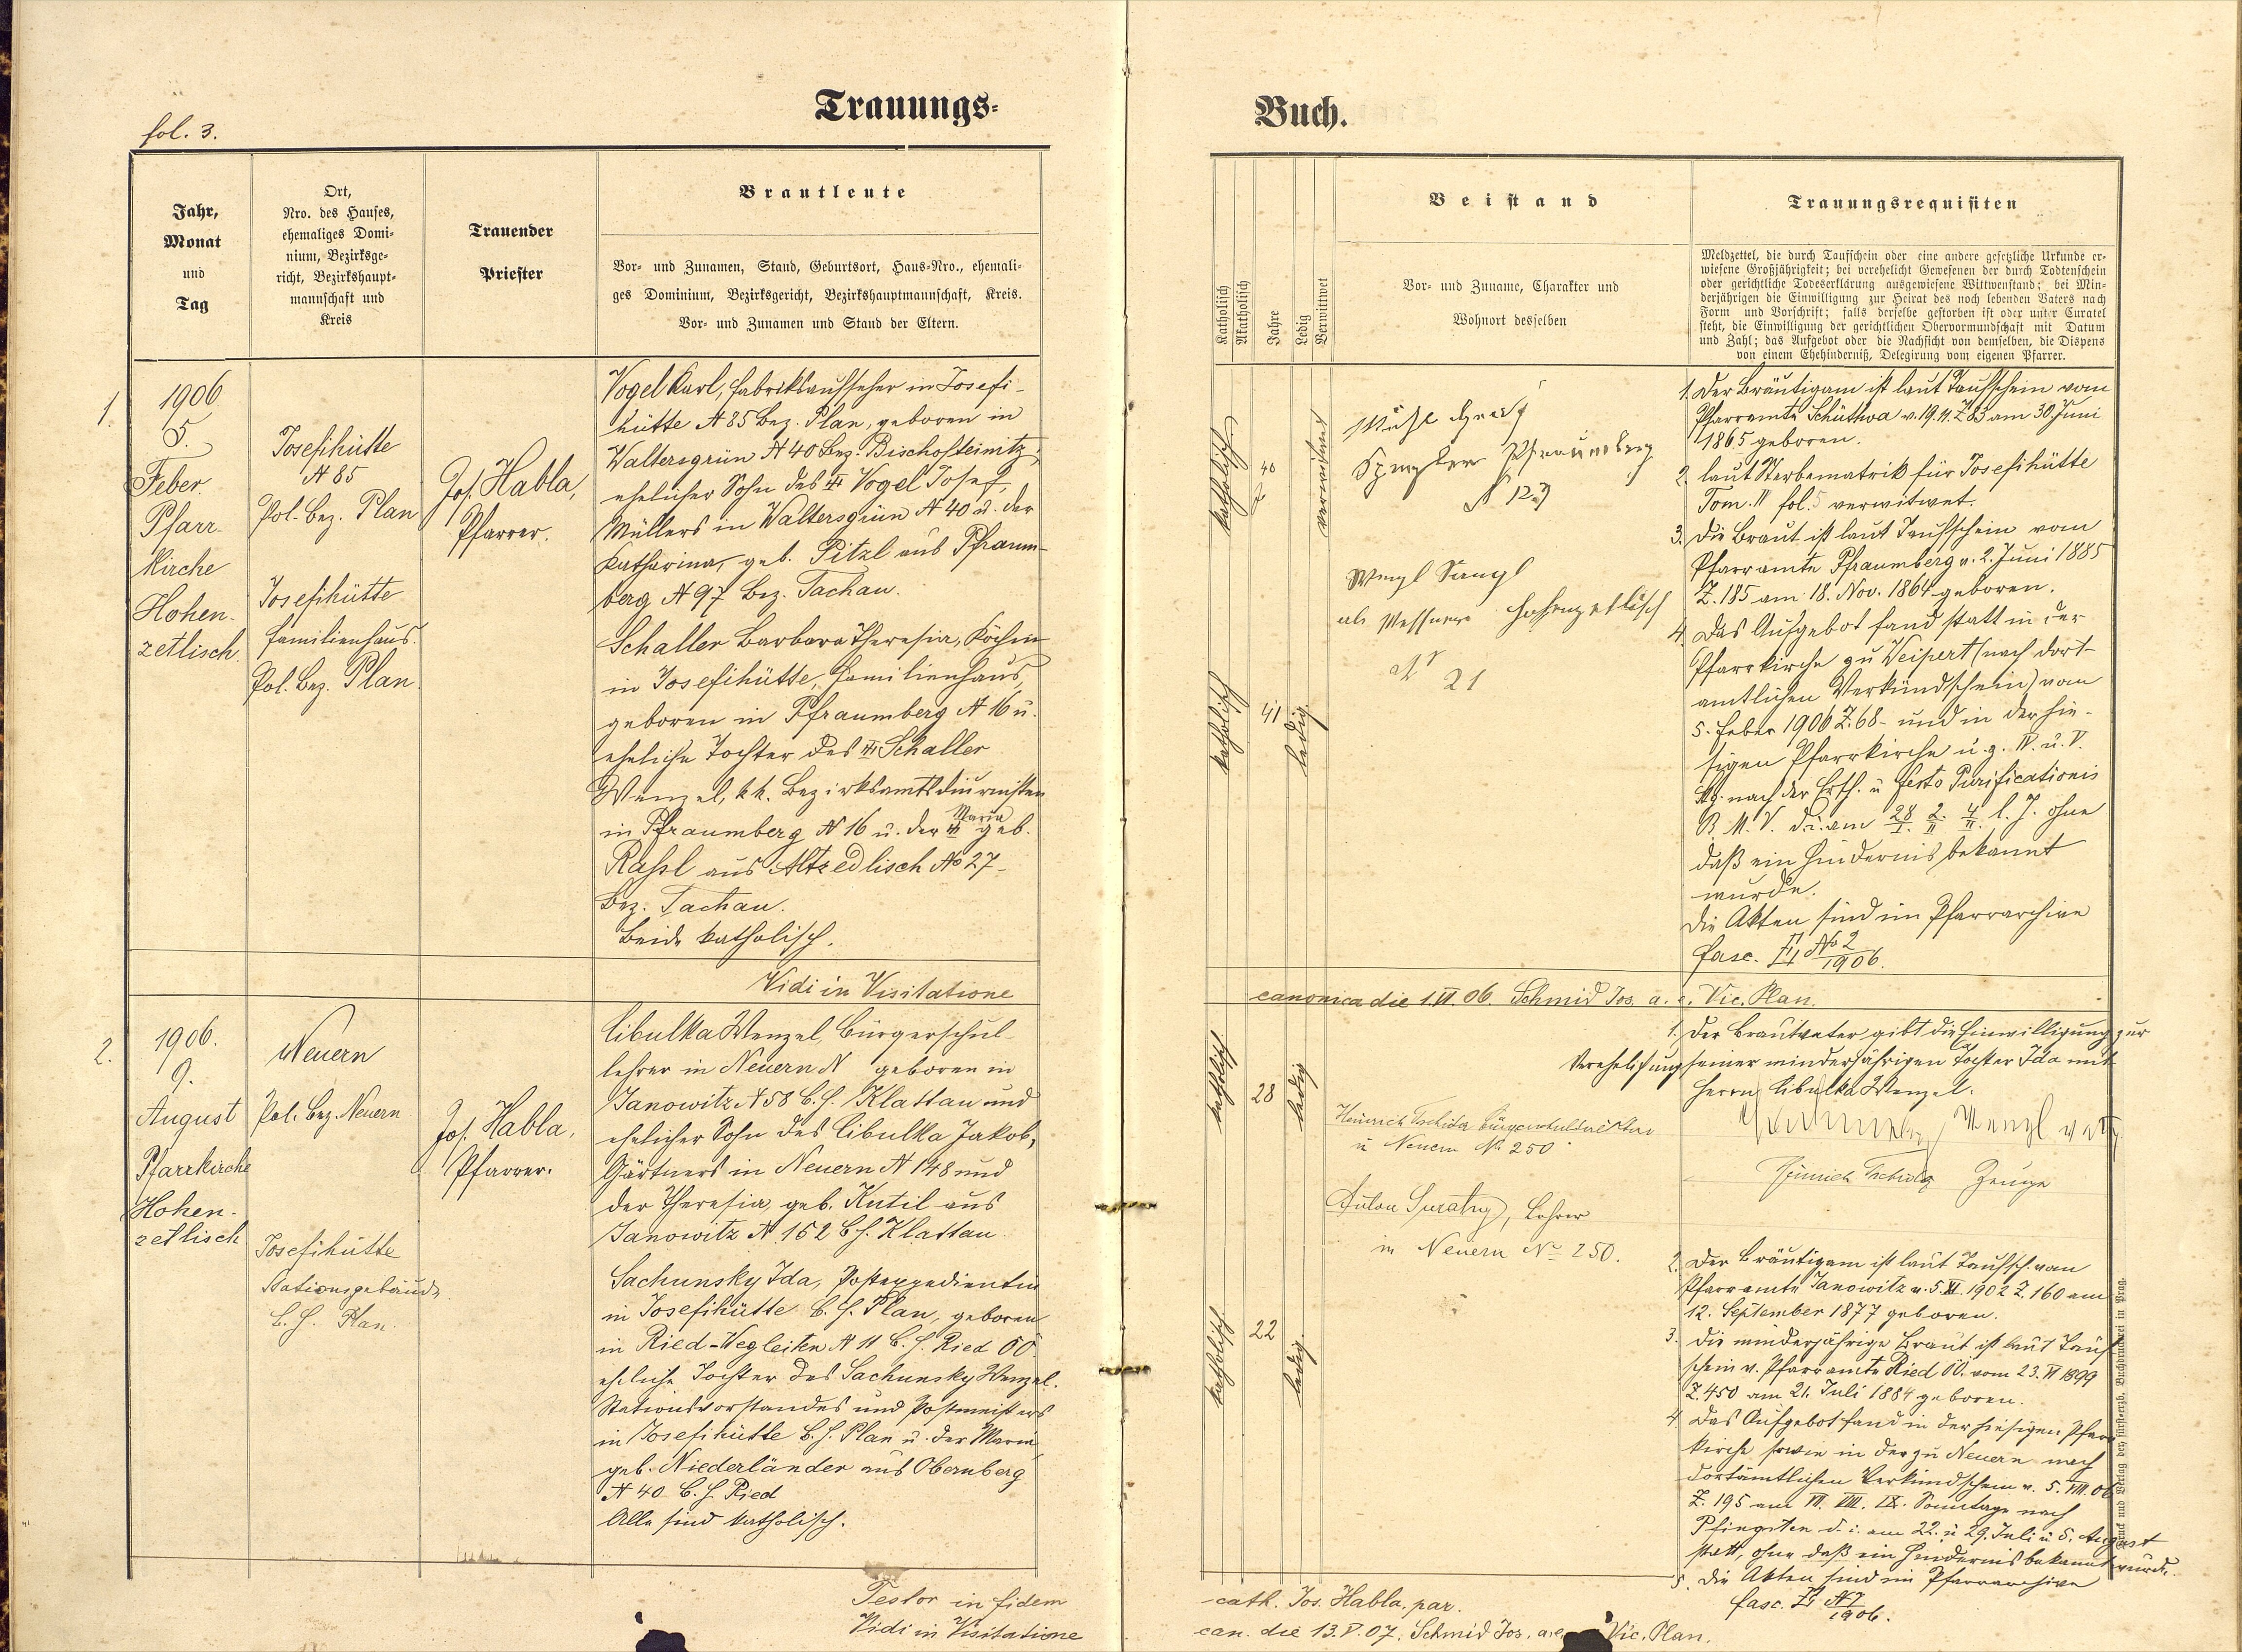 Trauungs-
fol. 3.
Jahr,
Monat
und
Tag
Ort,
Nro. des Hauses,
ehemaliges Domi-
nium, Bezirksge-
richt, Bezirkshaupt-
mannschaft und
Kreis
Trauender
Priester
Brautleute
Vor- und Zunamen, Stand, Geburtsort, Haus-Nro., ehemali-
ges Dominium, Bezirksgericht, Bezirkshauptmannschaft, Kreis.
Vor- und Zunamen und Stand der Eltern.
1.
1906
5.
Feber.
Pfarr-
kirche
Hohen-
zetlisch.
Josefihütte
N 85
Pol. Bez. Plan
Josefihütte
Familienhaus.
Pol. Bez. Plan.
Jos. Habla,
Pfarrer.
Vogel Karl, Fabriksaufseher in Josefi-
hütte N 85 Bez. Plan, geboren in
Waltersgrün N 40 Bez. Bischofteinitz,
ehelicher Sohn des Vogel Josef,
Müllers in Waltersgrün N 40 u. der
Katharina, geb. Pitzl aus Pfraum-
berg N 97 Bez. Tachau.
Schaller Barbara Theresia, Köchin
in Josefihütte, Familienhaus,
geboren in Pfraumberg N 16 u.
eheliche Tochter des Schaller
Wenzel, k.k. Bezirksamtsdiurnisten
in Pfraumberg N 16 u. der Maria geb.
Raßl aus Altzedlisch No 27-
Bez. Tachau.
Beide katholisch.
Vidi in Visitatione
2.
1906.
9.
August
Pfarrkirche
Hohen-
zetlisch
Neuern
Pol. Bez. Neuern
Josefihütte
Stationsgebäude.
B. H. Plan.
Jos. Habla,
Pfarrer.
Cibulka Wenzel, Bürgerschul-
lehrer in Neuern N geboren in
Janowitz N 58 B. H. Klattau und
ehelicher Sohn des Cibulka Jakob,
Gärtners in Neuern N 148 und
der Theresia, geb. Kutil aus
Janowitz N 152 B. H. Klattau.
Sachunsky Ida, Postexpedientin
in Josefihütte B. H. Plan, geboren
in Ried-Wegleiten N 11 B. H. Ried OÖ.
eheliche Tochter des Sachunsky Wenzel.
Stationsvorstandes und Postmeisters
in Josefihütte B. H. Plan u. der Maria
geb. Niederländer aus Obernberg
N 40 B. H. Ried
Alle sind katholisch.
Testor in fidem
Vidi in Visitatione
Buch.
Katholisch
Akatholisch
Jahre
Ledig
Verwittwet
Beistand
Vor- und Zuname, Charakter und
Wohnort desselben
Trauungsrequisiten
Meldzettel, die durch Taufschein oder eine andere gesetzliche Urkunde er-
wiesene Großjährigkeit; bei verehelicht Gewesenen der durch Todtenschein
oder gerichtliche Todeserklärung ausgewiesene Wittwenstand; bei Min-
derjährigen die Einwilligung zur Heirat des noch lebenden Vaters nach
Form und Vorschrift; falls derselbe gestorben ist oder unter Curatel
steht, die Einwilligung der gerichtlichen Obervormundschaft mit Datum
und Zahl; das Aufgebot oder die Nachsicht von demselben, die Dispens
von einem Ehehinderniß, Delegirung vom eigenen Pfarrer.
katholisch
40
verwitwet
Spengler Pfraumberg
N 123
Wenzl
als Messner Hohenzetlisch
Nr 21
katholisch
41
ledig
1. Der Bräutigam ist laut Taufschein vom
Pfarramte Schüttwa v. 19. II. Z 83 am 30. Juni
1865 geboren.
2. laut Sterbematrik für Josefihütte
Tom. II fol. 5 verwitwet.
3. Die Braut ist laut Taufschein vom
Pfarramte Pfraumberg v. 2. Juni 1885
Z. 185 am 18. Nov. 1864 geboren.
4. Das Aufgebot fand statt in der
Pfarrkirche zu Weipert (nach dort-
amtlichen Verkündschein) vom
5. Feber 1906 Z. 68- und in der hie-
sigen Pfarrkirche u. z. IV. u. V.
Stg. nach der Ersch. u festo Purificationis
B. M. V. d. i. am 28/I. 2./II 4/II. l. J. ohne
daß ein Hindernis bekannt
wurde.
Die Akten sind im Pfarrarchive
fasc. No 2/1906.
canonica die 1. VI. 06. Schmid Jos. a. e. Vic. Plan.
katholisch
28
ledig
Heinrich Tschida Bürgerschuldirektor
in Neuern No 250
Anton, Lehrer
in Neuern No 250.
katholisch
22
ledig
1. Der Brautvater gibt die Einwilligung zur
Verehelichung seiner minderjährigen Tochter Ida mit
Herrn Cibulka Wenzel.
Sachunsky Wenzl
Heinrich Tschida Zeuge
2. Der Bräutigam ist laut Taufsch. vom
Pfarramte Janowitz v. 5. XI. 1902 Z. 160 am
12. September 1877 geboren.
3. Die minderjährige Braut ist laut Tauf-
schein v. Pfarramte Ried OÖ. vom 23. VI 1899
Z. 450 am 21. Juli 1884 geboren.
4. Das Aufgebot fand in der hiesigen Pfarr-
kirche sowie in der zu Neuern nach
dortämtlichen Verkündschein v. 5. VIII. 06
Z. 195 am VII. VIII. IX. Sonntage nach
Pfingsten d. i. am 22. u 29. Juli u 5. August
statt, ohne daß ein Hindernis bekannt wurde.
5. Die Akten sind im Pfarrarchive
fasc. N 7/1906.
Druck und Verlag der fürsterzb. Buchdruckerei in Prag.
cath. Jos. Habla, par.
can. die 13. V. 07. Schmid Jos. a. e. Vic. Plan.